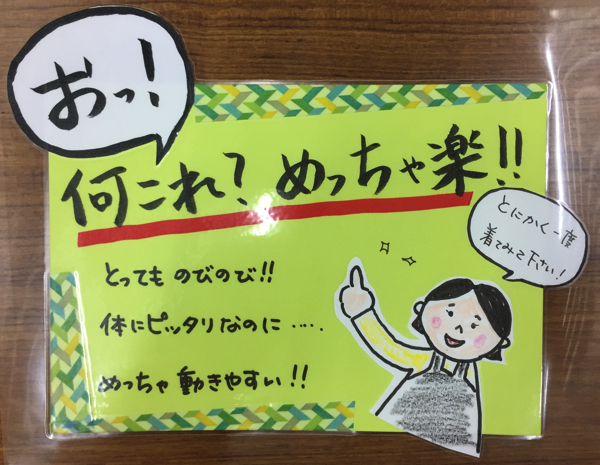 おっ!
何これ?めっちゃ楽!!
とにかく一度
着てみて下さい!
とっても のびのび!!
体にピッタリなのに‥‥.
めっちゃ動きやすい!!